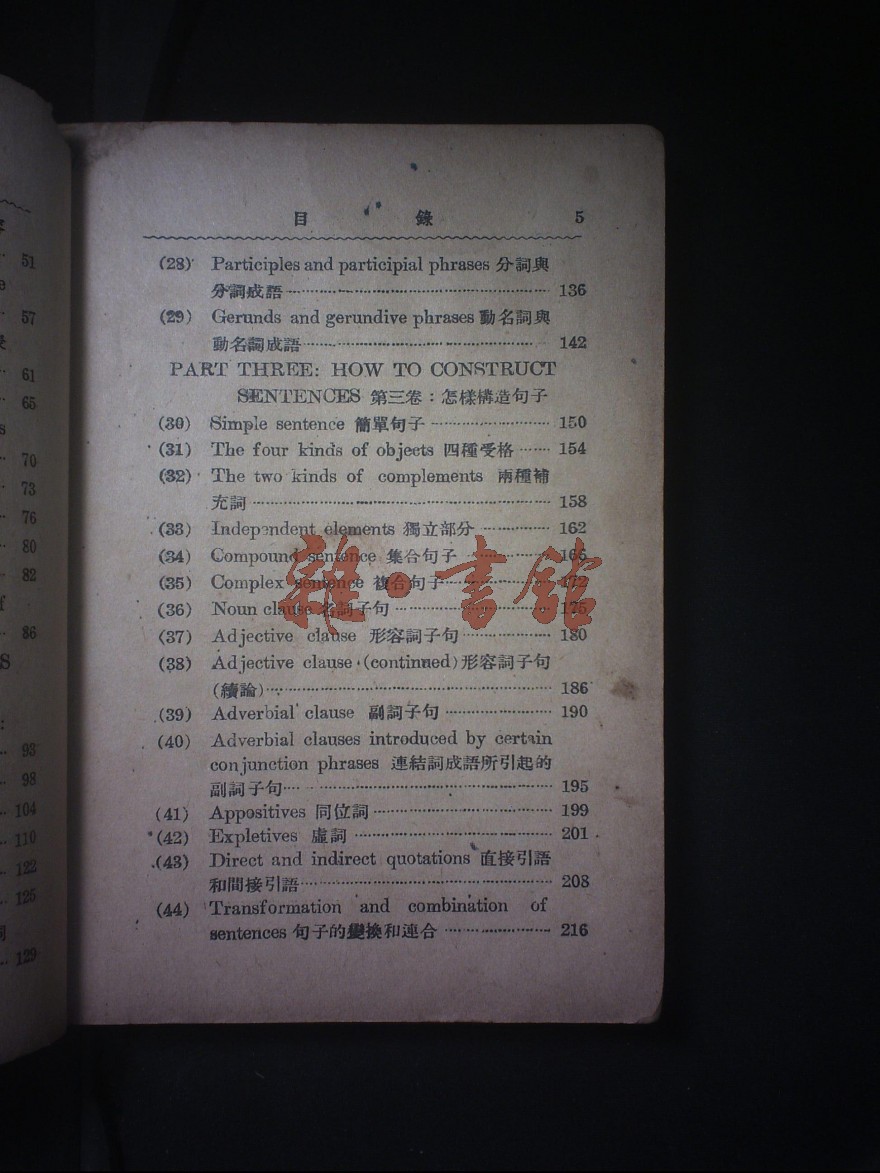 51
57
61
65
70
73
76
80
82
86
93
98
104
110
122
125
129
目 錄 5
(28) Participles and participial phrases 分詞與
分詞成語 136
(29) Gerunds and gerundive phrases 動名詞與
動名詞成語 142
PART THREE: HOW TO CONSTRUCT
SENTENCES 第三卷：怎樣構造句子
(30) Simple sentence 簡單句子 150
(31) The four kinds of objects 四種受格 154
(32) The two kinds of complements 兩種補
充詞 158
(33) Independent elements 獨立部分 162
(34) Compound sentence 集合句子 166
(35) Complex sentence 複合句子 172
(36) Noun clause 名詞子句 175
(37) Adjective clause 形容詞子句 180
(38) Adjective clause (continued) 形容詞子句
(續論) 186
(39) Adverbial clause 副詞子句 190
(40) Adverbial clauses introduced by certain
conjunction phrases 連結詞成語所引起的
副詞子句 195
(41) Appositives 同位詞 199
(42) Expletives 虛詞 201
(43) Direct and indirect quotations 直接引語
和間接引語 208
(44) Transformation and combination of
sentences 句子的變換和連合 216
雜·書館